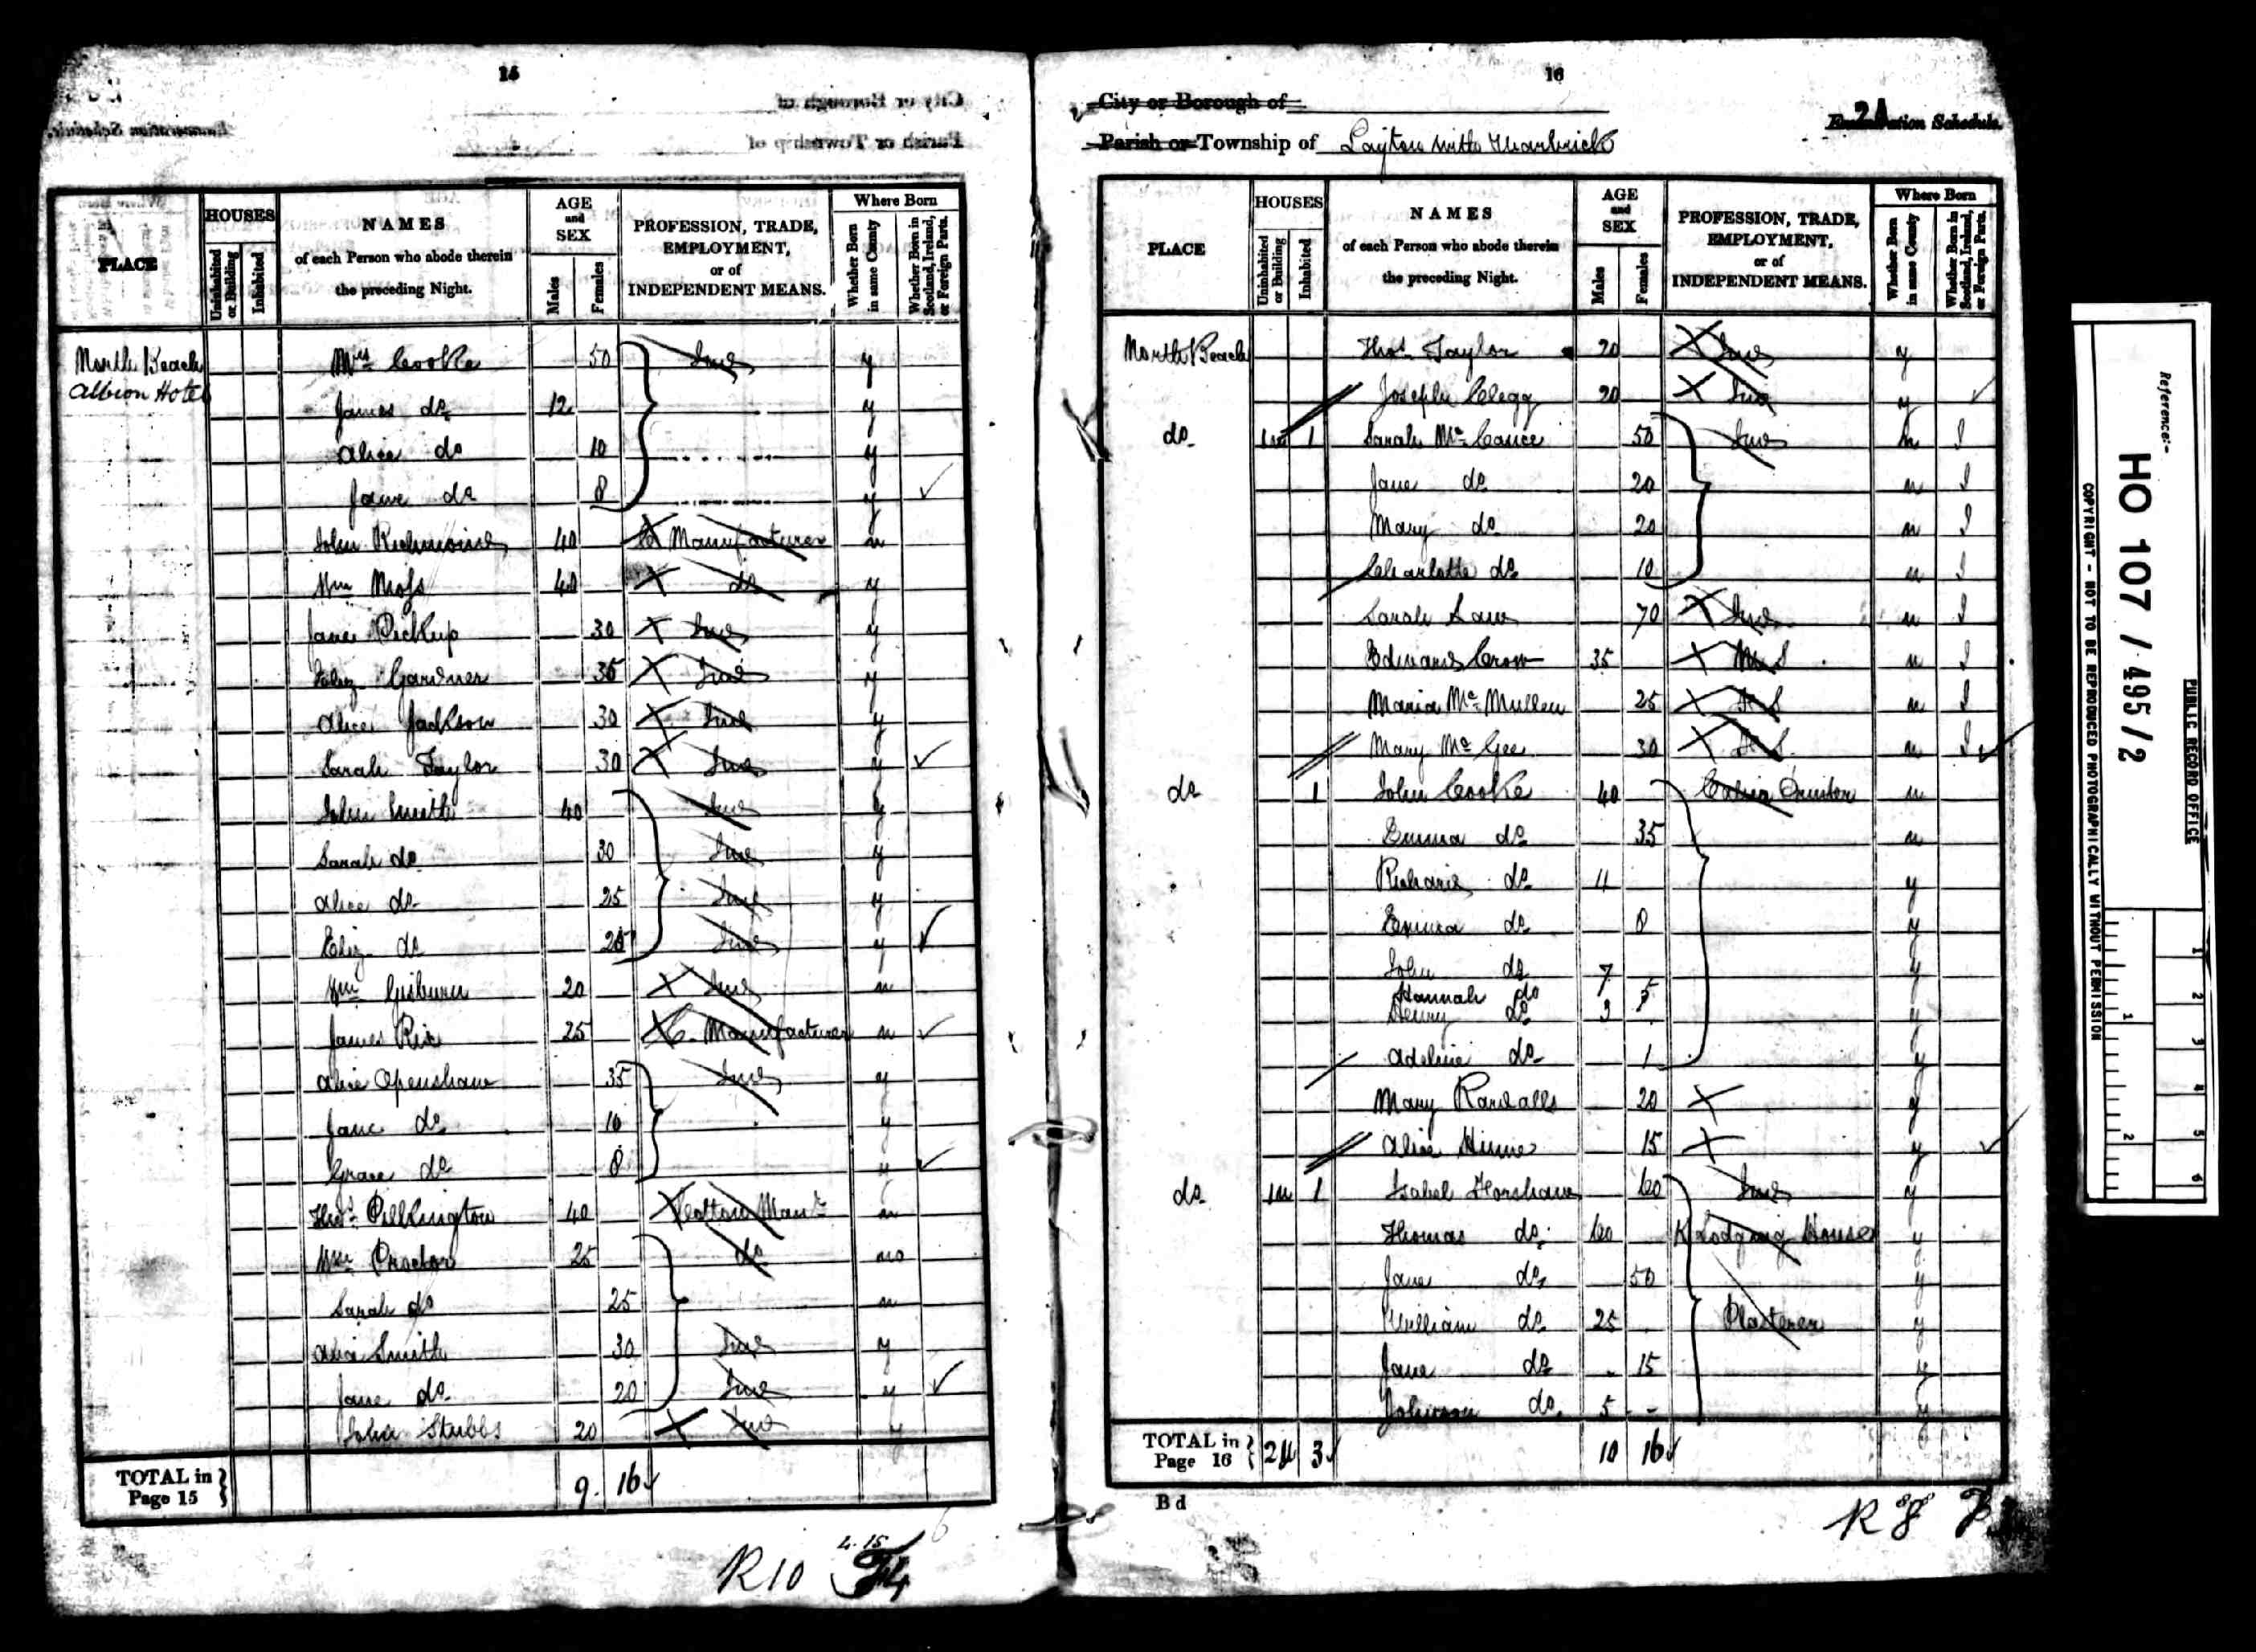 15
City or Borough of
Parish or Township of
Enumeration Schedule.
PLACE
HOUSES
Uninhabited or Building
Inhabited
NAMES
of each Person who abode therein
the preceding Night.
AGE
and
SEX
Males
Females
PROFESSION, TRADE,
EMPLOYMENT,
or of
INDEPENDENT MEANS.
Where Born
Whether Born in same County
Whether Born in Scotland, Ireland, or Foreign Parts.
North Beach Mrs Cooke 50 Ind y
Albion Hotel James do 12 y
Alice do 10 y
Jane do 8 y
John Richmond 40 C Manufacturer n
Wm Moss 40 do y
Jane Pickup 30 Ind y
Eliz Gardner 35 Ind y
Alice Jackson 30 Ind y
Sarah Taylor 30 Ind y
John Smith 40 Ind y
Sarah do 30 Ind y
Alice do 25 Ind y
Eliz do 25 Ind y
Wm Gisburn 20 Ind n
James Rix 25 C. Manufacturer n
Alice Openshaw 35 Ind y
Jane do 10 y
Grace do 8 y
Thos Pilkington 40 Cotton Manr n
Wm Proctor 25 do no
Sarah do 25 n
Alice Smith 30 Ind y
Jane do 20 Ind y
John Stubbs 20 Ind y
TOTAL in
Page 15
9 16
R10
4.15
F4
16
City or Borough of
2A
Enumeration Schedule.
Parish or Township of Layton with Warbrick
PLACE
HOUSES
Uninhabited or Building
Inhabited
NAMES
of each Person who abode therein
the preceding Night.
AGE
and
SEX
Males
Females
PROFESSION, TRADE,
EMPLOYMENT,
or of
INDEPENDENT MEANS.
Where Born
Whether Born in same County
Whether Born in Scotland, Ireland, or Foreign Parts.
North Beach Thos Taylor 20 Ind y
Joseph Clegg 20 Ind y
do 1 Sarah Mc Cance 50 Ind n I
Jane do 20 n I
Mary do 20 n I
Charlotte do 10 n I
Sarah Law 70 Ind n I
Edward Crow 35 M S n I
Maria Mc Mullen 25 F S n I
Mary Mc Gee 30 F S n I
do 1 John Cooke 40 Calico Printer n
Emma do 35 n
Richard do 11 y
Emma do 8 y
John do 7 y
Hannah do 5
Henry do 3 y
Adeline do 1 y
Mary Randalls 20 y
Alice Hime 15 y
do 1 Isabel Horshaw 60 Ind y
Thomas do 60 K Lodging House y
Jane do 50 y
William do 25 Plasterer y
Jane do 15 y
Johnson do 5 y
TOTAL in
Page 16
3 10 16
B d
R 8
Reference:-
HO 107 / 495/2
PUBLIC RECORD OFFICE
COPYRIGHT - NOT TO BE REPRODUCED PHOTOGRAPHICALLY WITHOUT PERMISSION
1 2 3 4 5 6
1 2